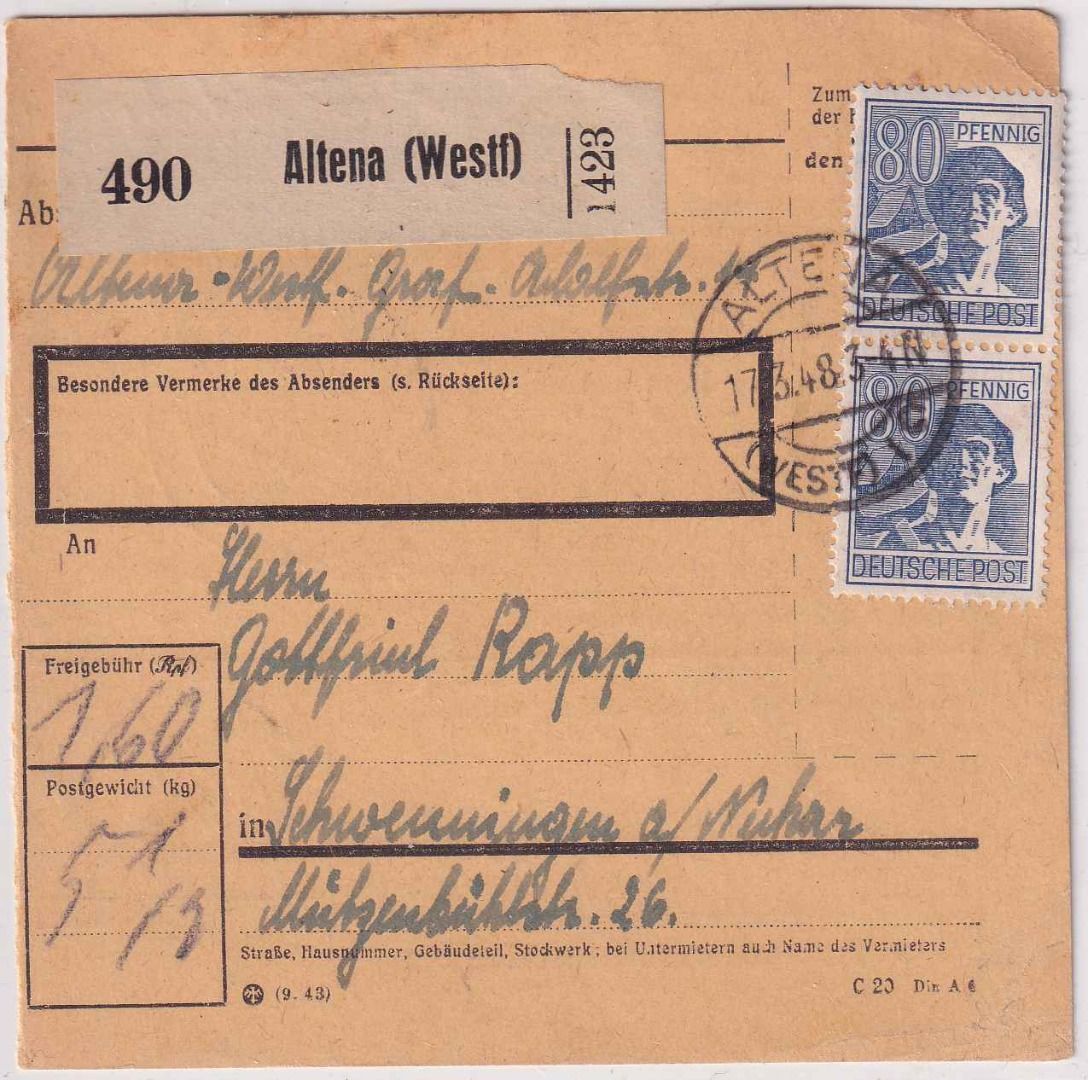 490 Altena (Westf) 1423
Zum
der
den
Abs
Altena-Westf. Graf-Adolfstr.
80 PFENNIG
DEUTSCHE POST
80 PFENNIG
DEUTSCHE POST
ALTENA
17.3.48.3-4N
(WESTF)
Besondere Vermerke des Absenders (s. Rückseite):
An
Herrn
Gottfried Rapp
Freigebühr (Rpf)
1,60
Postgewicht (kg)
5
in Schwenningen a/Neckar
Mützenbühlstr. 26.
Straße, Hausnummer, Gebäudeteil, Stockwerk; bei Untermietern auch Name des Vermieters
(9. 43)
C 20 Din A 6